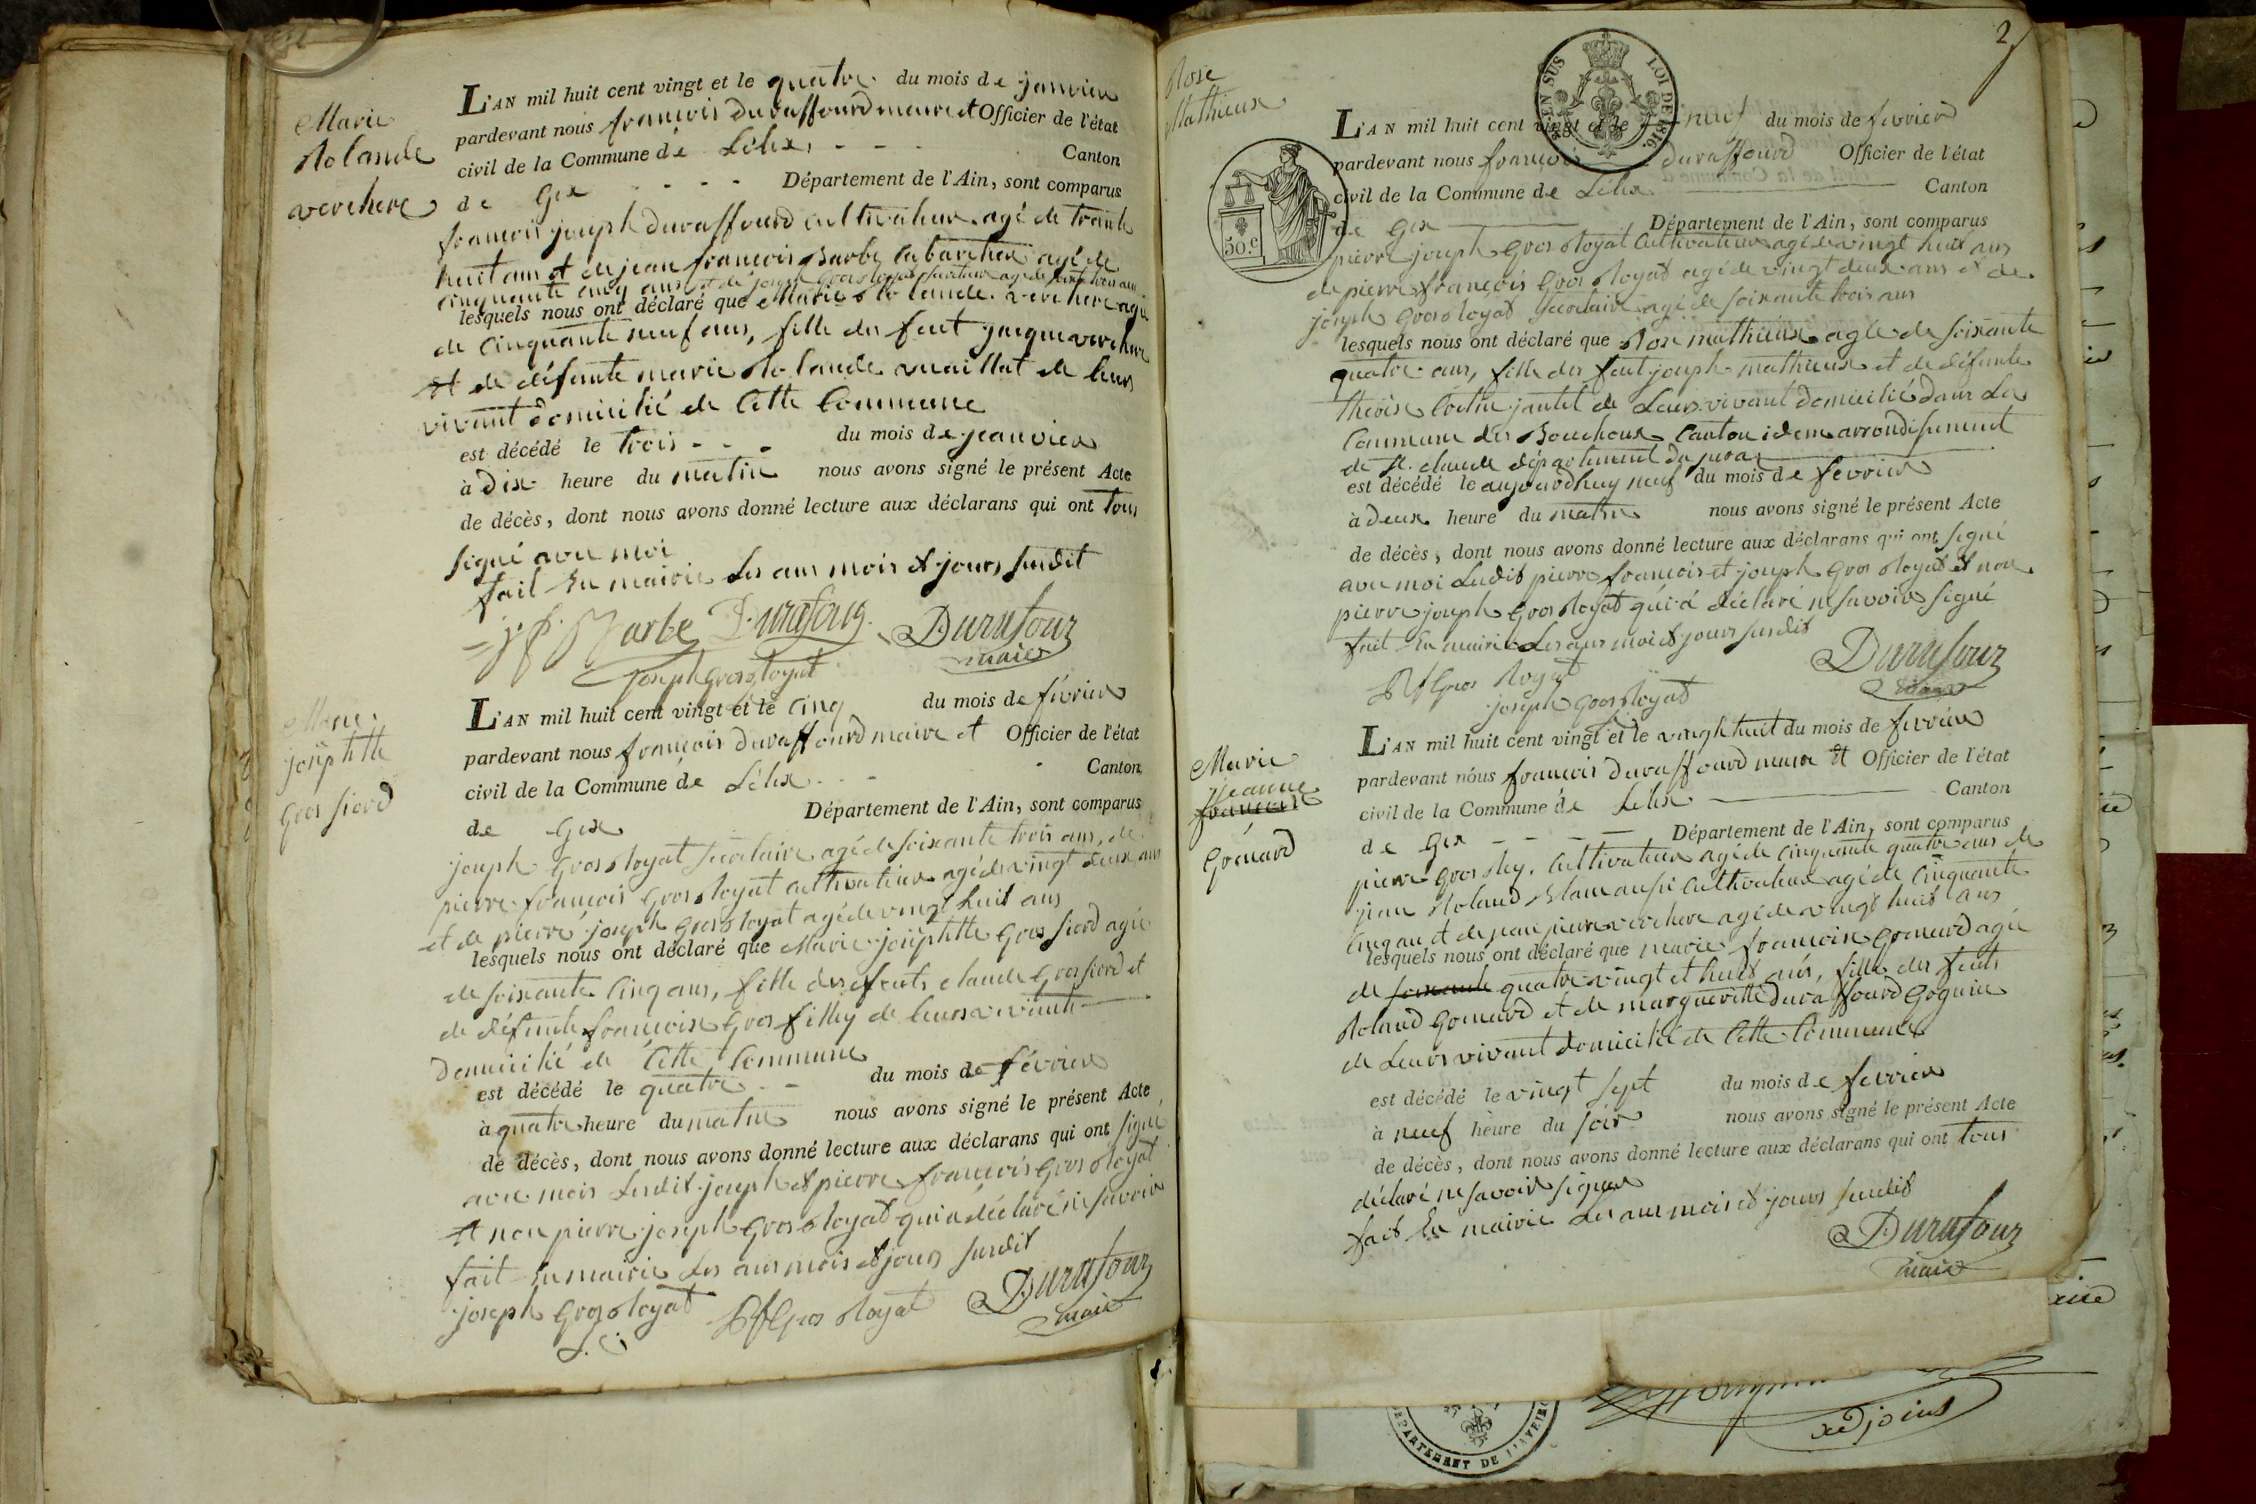 Marie
Rolande
verchere
L'AN mil huit cent vingt et le quatre du mois de janvier
pardevant nous françois duraffourd maire et Officier de l'état
civil de la Commune de Lélex, - - - Canton
de Gex - - - - Département de l'Ain, sont comparus
françois joseph duraffourd cultivateur agé de trante
huit ans et de jean françois Barbe cabaretier agé de
cinquante cinq ans et de joseph Gros Royat secretaire agé de soixante trois ans
lesquels nous ont déclaré que Marie Rolande verchere agée
de cinquante neuf ans, fille des feut jacque verchere
et de défunte marie Rolande vuaillat de leurs
vivant domicilié de Cette Commune
est décédé le trois - - - du mois de jeanvier
à dix heure du matin nous avons signé le présent Acte
de décès, dont nous avons donné lecture aux déclarans qui ont tous
signé avec moi
fait En mairie Les ans mois et jours susdit
j. f. Barbe Duraffour
maire
joseph Gros Royat
Marie
joséphtte
Gros fiord
L'AN mil huit cent vingt et le cinq du mois de février
pardevant nous françois duraffourd maire et Officier de l'état
civil de la Commune de Lélex - - - Canton
de Gex Département de l'Ain, sont comparus
joseph Gros Royat secretaire agé de soixante trois ans, de
pierre françois Gros Royat cultivateur agé de vingt deux ans
et de pierre joseph Gros Royat agé de vingt huit ans
lesquels nous ont déclaré que Marie joséphtte Gros fiord agée
de soixante Cinq ans, fille des feuts claude Gros fiord et
de défunte françoise Gros filley de leurs vivants
Domicilié de Cette Commune
est décédé le quatre - - du mois de février
à quatre heure du matin nous avons signé le présent Acte
de décès, dont nous avons donné lecture aux déclarans qui ont signé
avec mois Lesdit joseph et pierre françois Gros Royat
et non pierre joseph Gros Royat qui a déclaré ne savoir
fait En mairie Les ans mois et jours susdit
joseph Gros Royat PfGros Royat Duraffour
maire
2
Rose
Mathieux
EN SUS LOI DE 1816.
50.c
L'AN mil huit cent vingt et le neuf du mois de février
pardevant nous françois duraffourd Officier de l'état
civil de la Commune de Lélex Canton
de Gex Département de l'Ain, sont comparus
pierre joseph Gros Royat Cultivateur agé de vingt huit ans
de pierre françois Gros Royat agé de vingt deux ans et de
joseph Gros Royat secretaire agé de soixante trois ans
lesquels nous ont déclaré que Rose mathieux agée de soixante
quatre ans, fille des feut joseph mathieux et de défunte
jantet de Leurs vivant domicilié dans La
Commune des Bouchoux Canton idem arrondisement
de St. claude département du jura
est décédé le aujourdhuy neuf du mois de février
à deux heure du matin nous avons signé le présent Acte
de décès, dont nous avons donné lecture aux déclarans qui ont signé
avec moi Lesdit pierre françois et joseph Gros Royat et non
pierre joseph Gros Royat qui a déclaré ne savoir signé
fait En mairie Les ans mois et jours susdit
PfGros Royat Duraffour
joseph Gros Royat maire
Marie
jeanne
françoise
Gonard
L'AN mil huit cent vingt et le vingt huit du mois de février
pardevant nous françois duraffourd maire et Officier de l'état
civil de la Commune de Lélex Canton
de Gex - - - - Département de l'Ain, sont comparus
pierre Gros Rey. Cultivateur agé de cinquante quatre ans de
jean Roland Blanc aussi Cultivateur agé de cinquante
cinq an et de jean pierre verchere agé de vingt huit ans
lesquels nous ont déclaré que marie françoise Gonard agée
de soixante quatre vingt et huit ans, fille des feuts
Roland Gonard et de marguerite duraffourd
de Leurs vivant domicilié de Cette Commune
est décédé le vingt sept du mois de février
à neuf heure du soir nous avons signé le présent Acte
de décès, dont nous avons donné lecture aux déclarans qui ont tous
déclaré ne savoir signer
fait En mairie Les ans mois et jours susdit
Duraffour
maire
DEPARTEMENT DE L'AVEIRO
adjoint